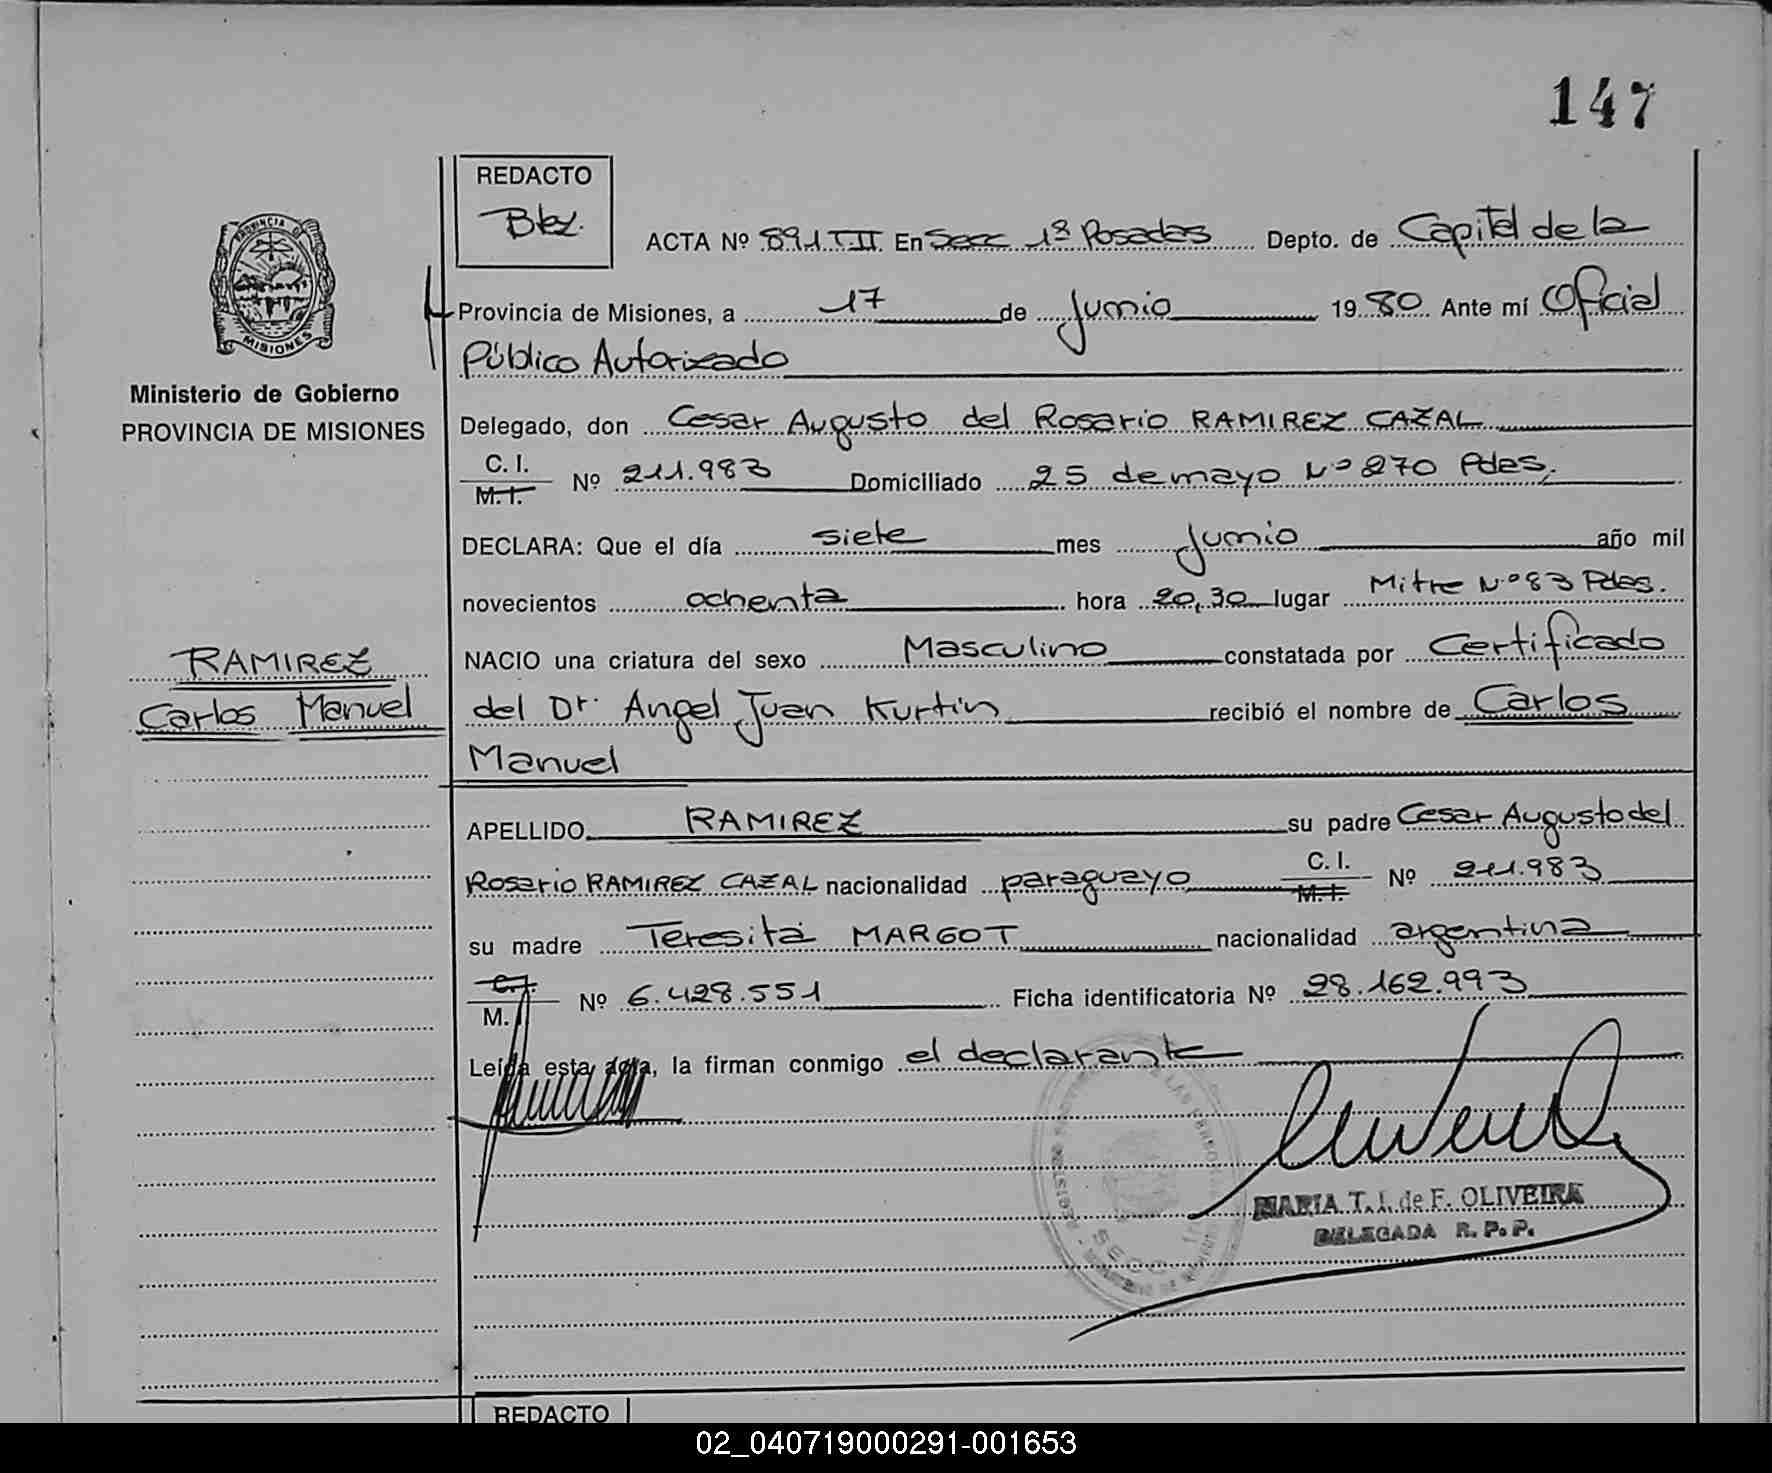 147
REDACTO
ACTA Nº 891 T II En Secc 1ª Posadas Depto. de Capital de la
Provincia de Misiones, a 17 de Junio 1980 Ante mí Oficial
Público Autorizado
PROVINCIA DE
MISIONES
Ministerio de Gobierno
PROVINCIA DE MISIONES
Delegado, don Cesar Augusto del Rosario RAMIREZ CAZAL
C. I.
M. I.
Nº 211.983 Domiciliado 25 de mayo Nº 270 Pdas.
DECLARA: Que el día siete mes Junio año mil
novecientos ochenta hora 20,30 lugar Mitre Nº 83 Pdas.
RAMIREZ
Carlos Manuel
NACIO una criatura del sexo Masculino constatada por Certificado
del Dr. Angel Juan Kurtin recibió el nombre de Carlos
Manuel
APELLIDO RAMIREZ su padre Cesar Augusto del
Rosario RAMIREZ CAZAL nacionalidad paraguayo C. I. M. I. Nº 211.983
su madre Teresita MARGOT nacionalidad argentina
C. I.
M. I.
Nº 6.428.551 Ficha identificatoria Nº 28.162.993
Leída esta acta, la firman conmigo el declarante
MARIA T. I. de F. OLIVEIRA
DELEGADA R. P. P.
REDACTO
02_040719000291-001653